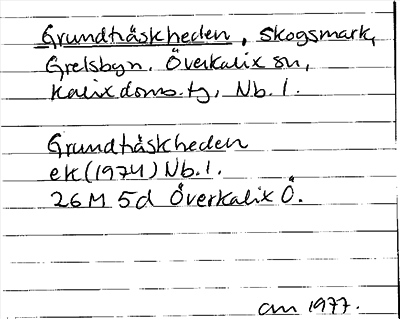 Grundträskheden, skogsmark,
Grelsbyn, Överkalix sn,
Kalix doms.tg, Nb. l.
Grundträskheden
ek (1974) Nb. l.
26 M 5d Överkalix Ö.
am 1977.